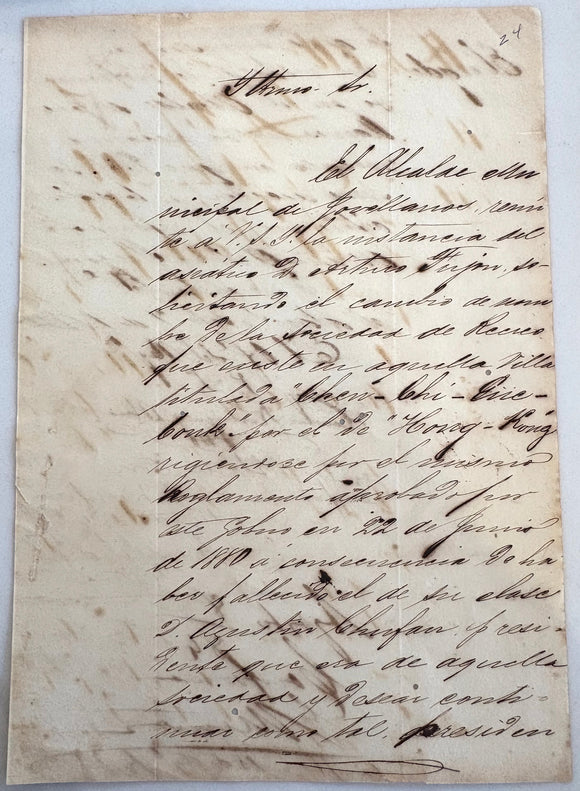 24
Ylltmo. Sr.
El Alcalde Mu
nicipal de Jovellanos, remi
te á V.S.Y. la instancia del
asiatico D. Arturo Fujon, so-
licitando el cambio de nom
bre de la sociedad de Recreo
que existe en aquella Villa
titulada "Chen-Chi-
Conh" por el de "Hong-Kong"
rigiendose por el mismo
Reglamento aprobado por
este Gobno en 22 de Junio
de 1880 á consecuencia de ha
ber fallecido el de su clase
D. Agustin Chufan, presi-
dente que era de aquella
sociedad y desear conti-
nuar como tal presiden